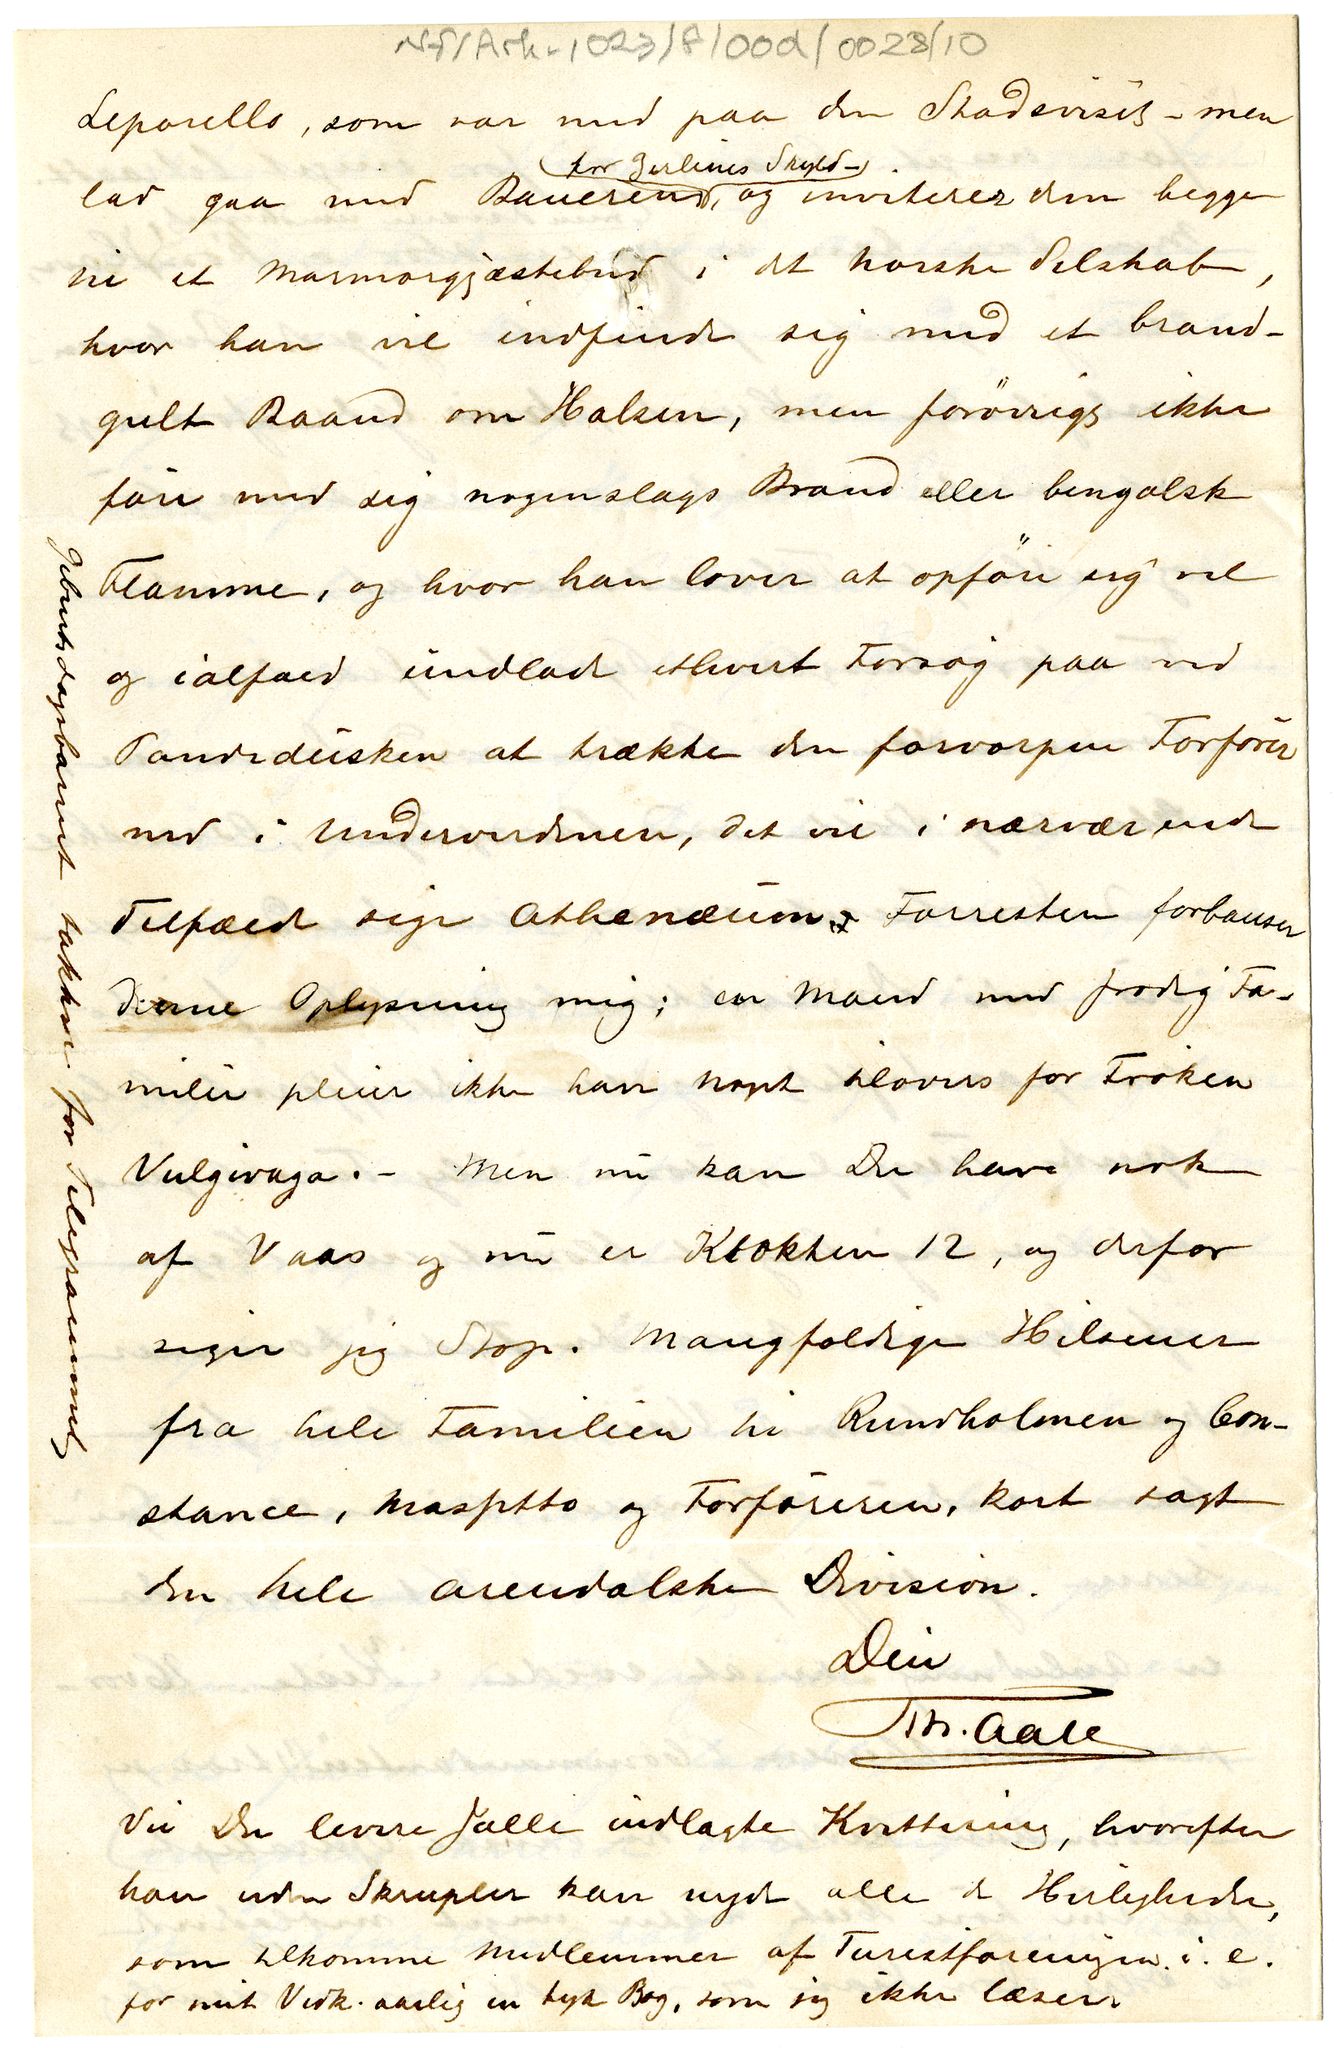 NF/Ark-1023/F/00d/0028/10
Leporello, som var med paa den Stadsvisit - men
for Zerlines Skyld -
lad gaa med Baueren, og inviterer dem begge
til et Marmorgjæstebud i det norske Selskab,
hvor han vil indfinde sig med et brand-
gult Baand om Halsen, men forövrigt ikke
före med sig nogenslags Brand eller bengalsk
Flamme, og hvor han lover at opföre sig vel
og ialfald undlade ethvert Forsøg paa ved
Pandedusken at trække den forvorpne Forförer
ned i Underverdenen, det vil i nærværende
Tilfælde sige Athenæum. Forresten forbauser
denne Oplysning mig; en Mand med frodig Fa-
milie pleier ikke have noget tilovers for Frøken
Vulgivaga. - Men nu kan Du have nok
af Vaas og nu er Klokken 12, og derfor
siger jeg Stop. Mangfoldige Hilsener
fra hele Familien til Rundholmen og Con-
stance, og Forföreren, kort sagt
den hele arendalske Division.
Din
Th. Aall
Vil Du levere Jalle indlagte Kvittering, hvorefter
han uden Skrupler kan nyde alle de Herligheder,
som tilkomme Medlemmer af Turistforeningen. i. e.
for mit Vedk. aarlig en tyk Bog, som jeg ikke læser.
Geburtsdagsbarnet takker for Telegrammet